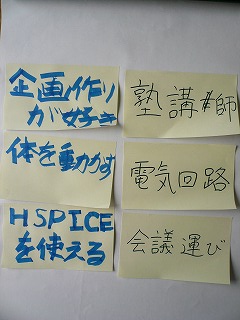 企画作り
が好き
塾講師
体を動かす
電気回路
HSPICE
を使える
会議運び